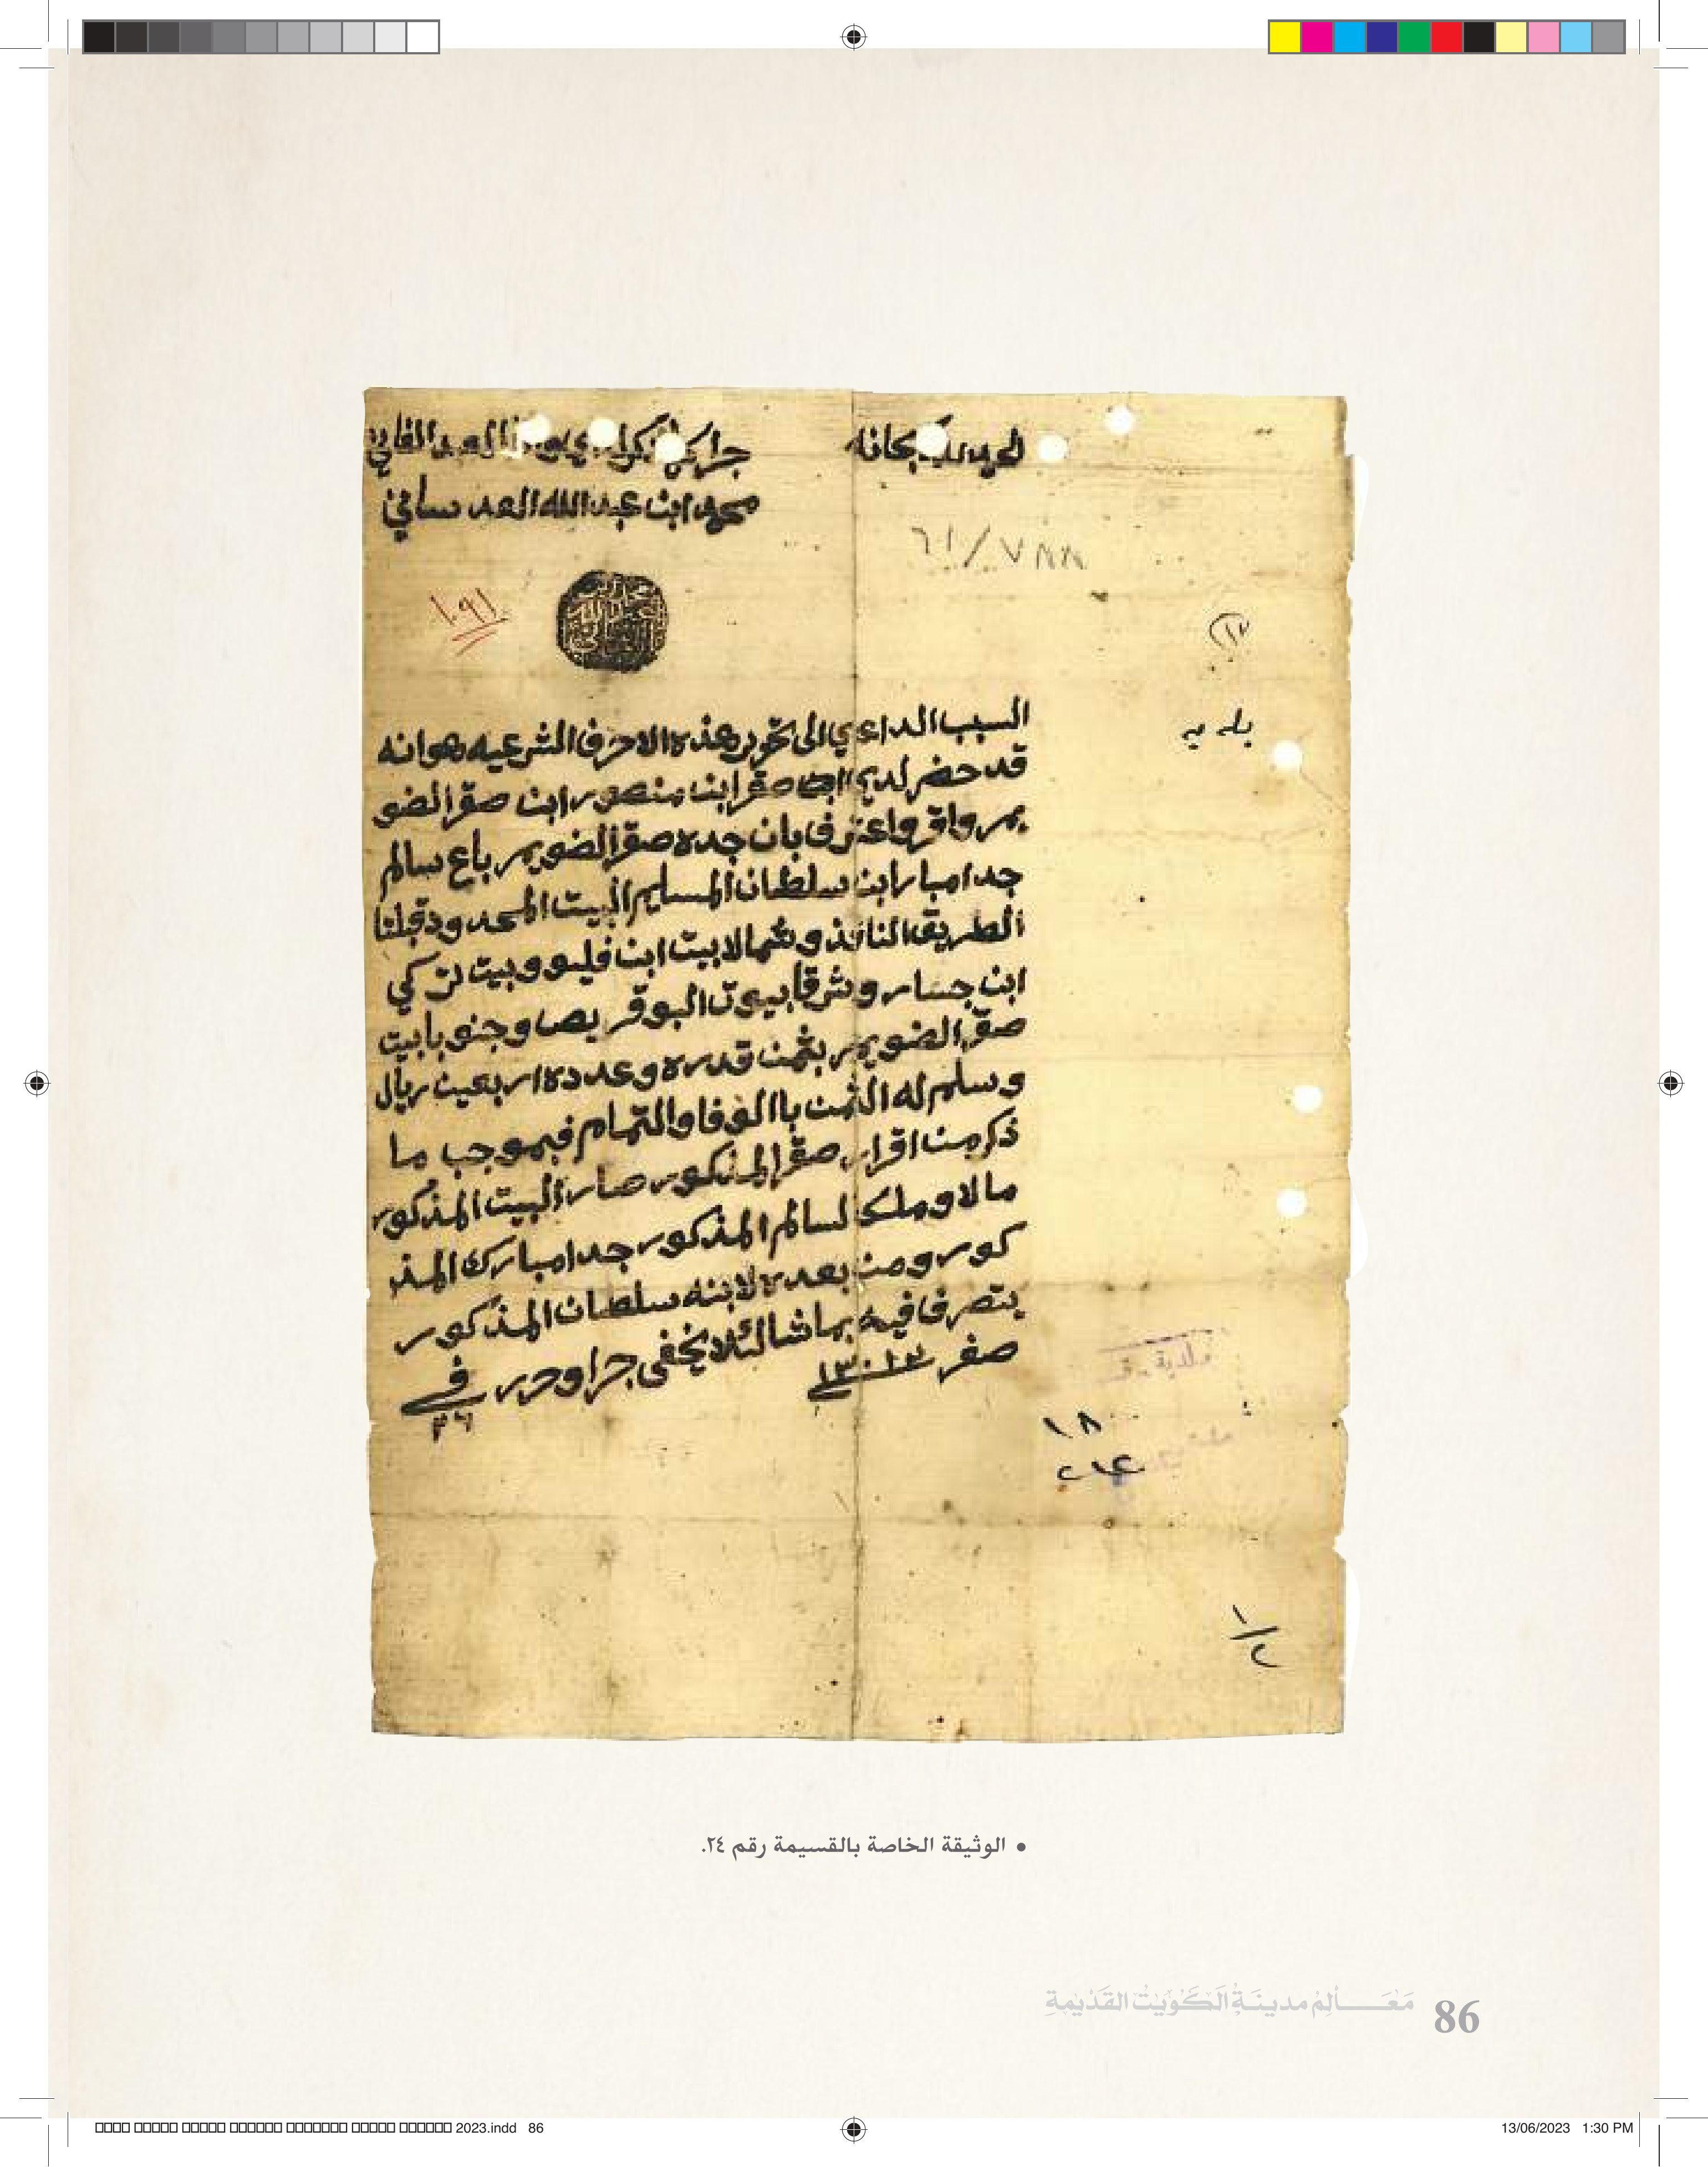 الحمد لله سبحانه
جرا
لدي وانا العبد الفاني
محمد ابن عبدالله العدساني
٦١/٧٨٨
١٠٩١
بلديه
السبب الداعي الى تحرير هذه الاحرف الشرعيه هو انه
قد حضر لدي صقر ابن منصور ابن صقر الضو
يحر واقر واعترف بان جده صقر الضويحر باع سالم
جد امبارابن سلطان المسليم البيت المحدود قبلتا
الطريق النافذ وشمالا بيت ابن فليو وبيت تركي
ابن جسار وشرقا بيوت البوقريص وجنوبا بيت
صقر الضويحر بثمن قدره وعدده اربعين ريال
وسلم له الثمن باالوفا والتمام فبموجب ما
ذكر من اقرار صقر المذكور صار البيت المذكور
مالا وملكا لسالم المذكور جد امبارك المذ
كور ومن بعده لابنه سلطان المذكور
يتصرف فيه بماشا لئلا يخفى جرا وحرر في
٢٦
صفر ١٣٠١٣
١٨
٢١٤
١/٢
• الوثيقة الخاصة بالقسيمة رقم ٢٤.
86 مَعَـالِمُ مدينَةِ الكُوَيْتِ القَدِيمَةِ
2023.indd 86
13/06/2023 1:30 PM